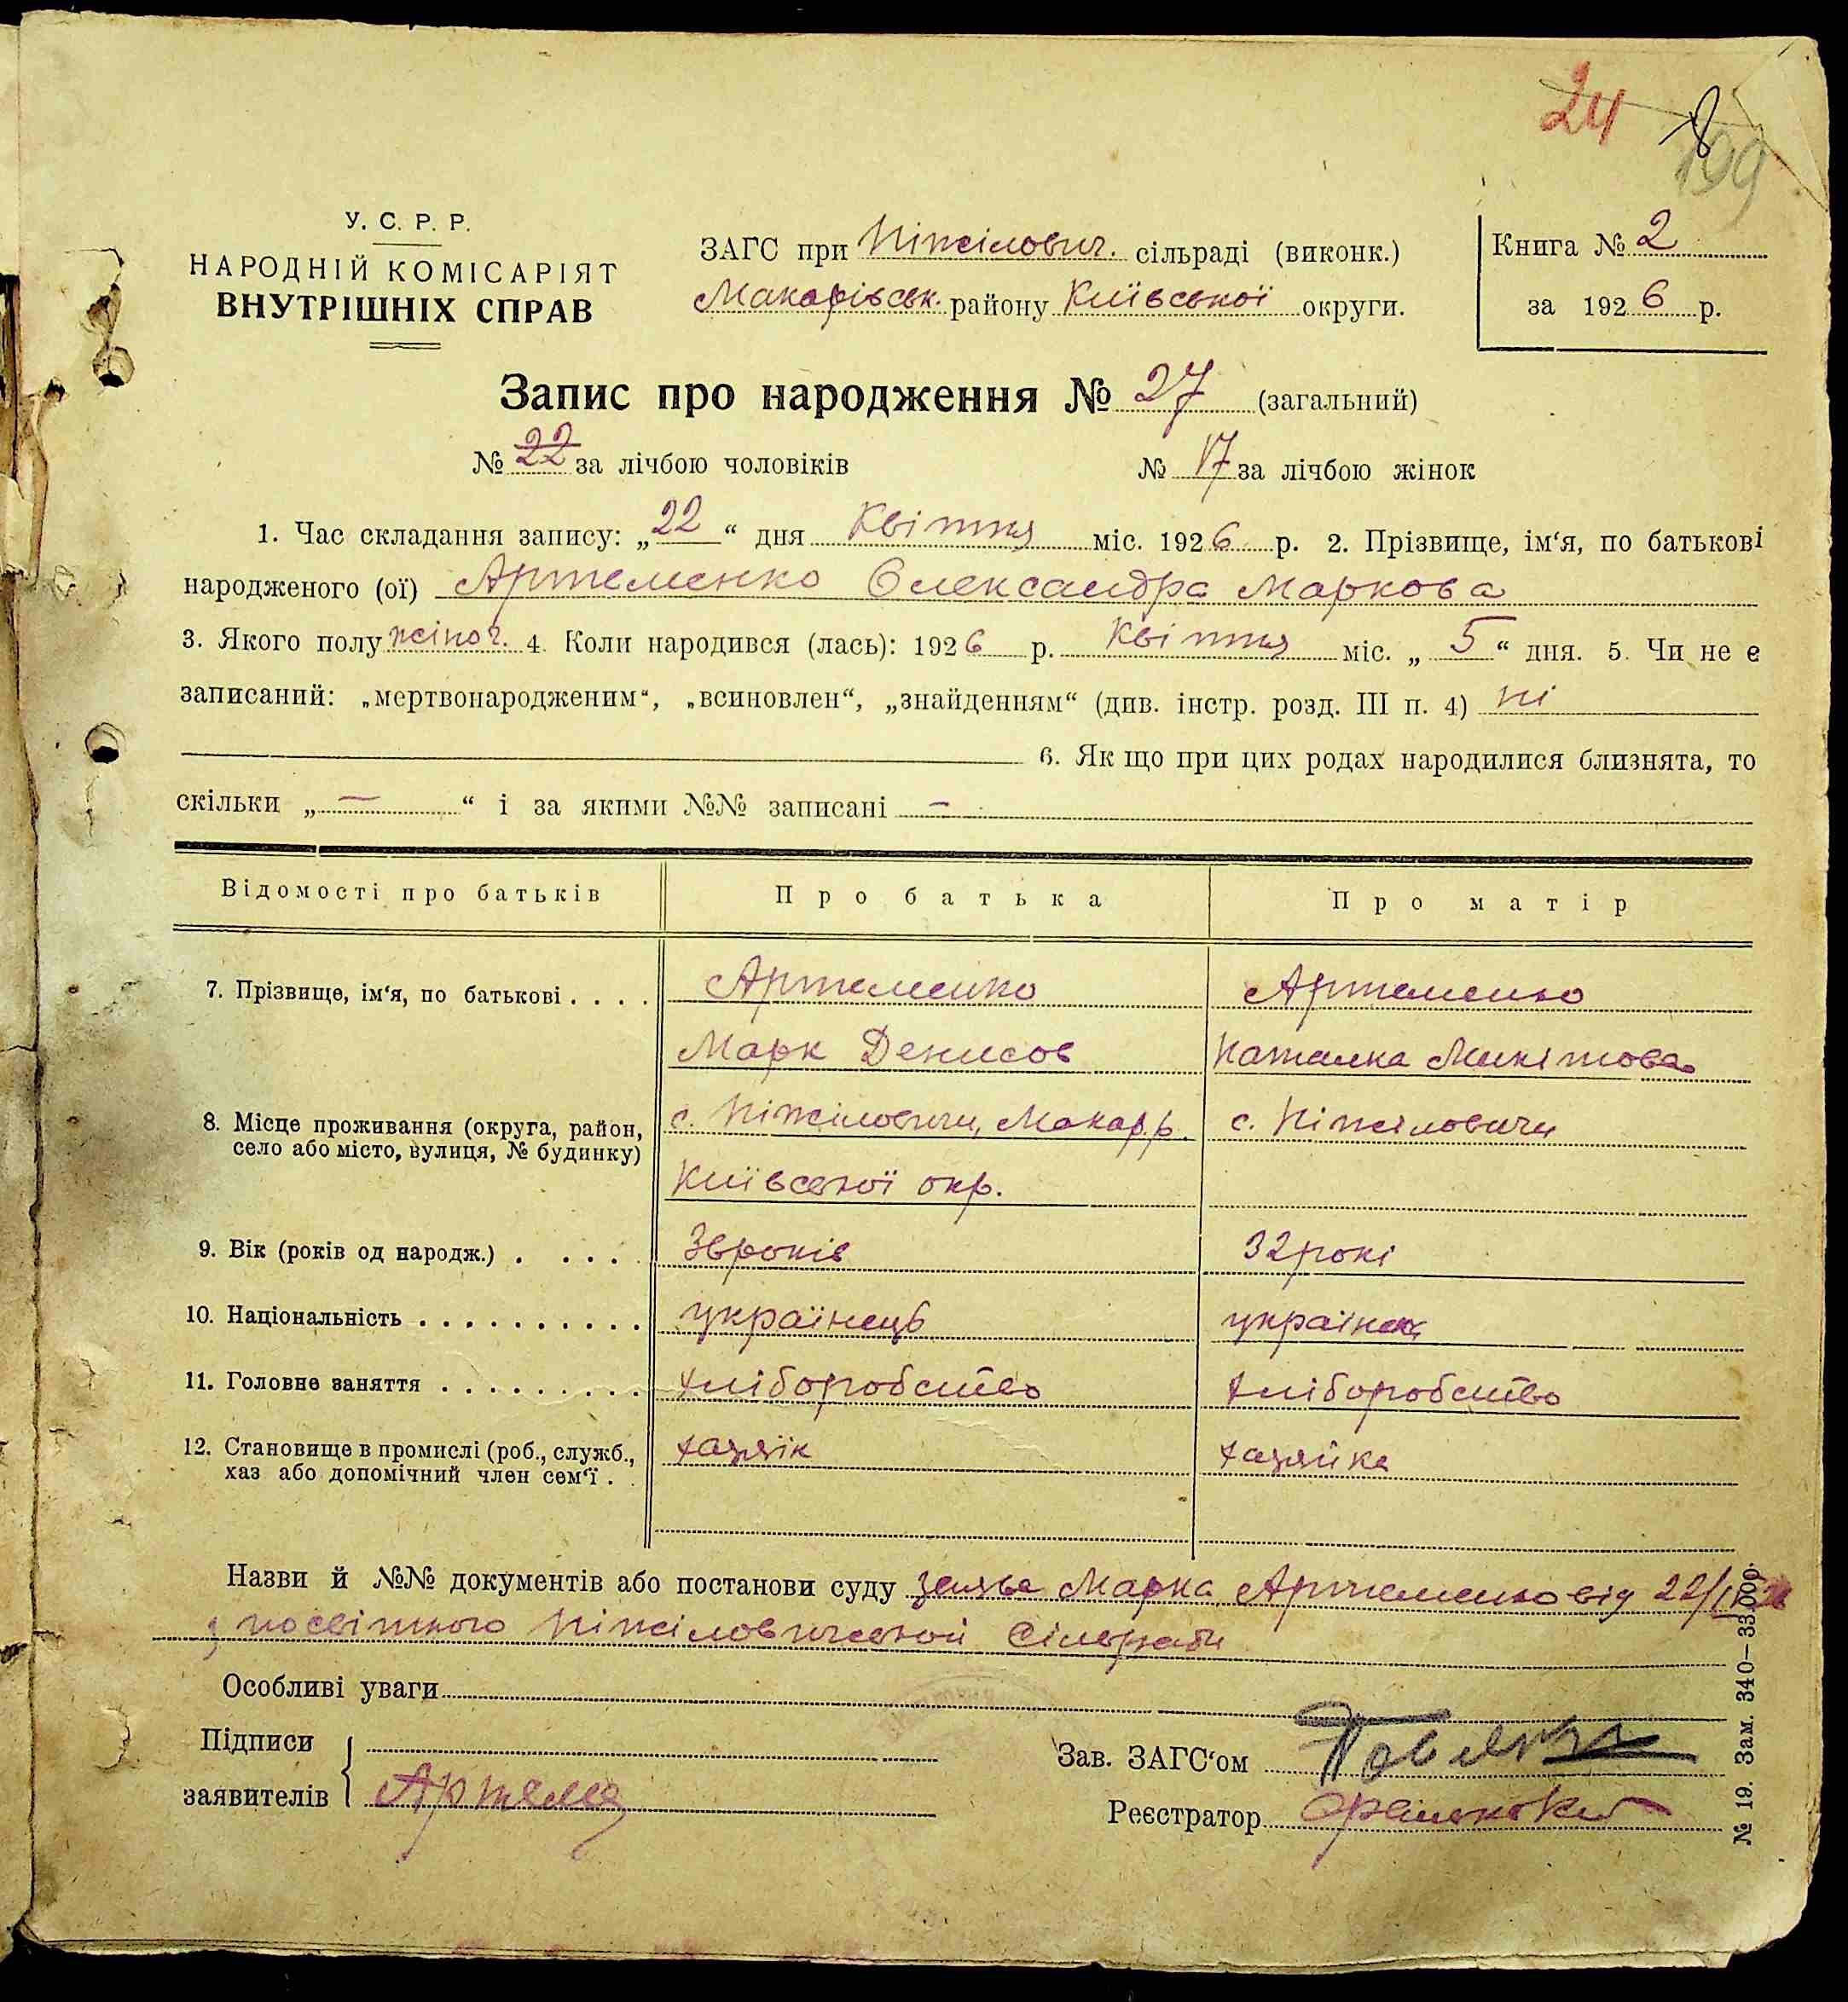 24 8
199
У. С. Р. Р.
НАРОДНІЙ КОМІСАРІЯТ
ВНУТРІШНІХ СПРАВ
ЗАГС при Ніжілович. сільраді (виконк.)
Макарівськ. району Київської округи.
Книга № 2
за 1926 р.
Запис про народження № 27 (загальний)
№ 22 за лічбою чоловіків № 17 за лічбою жінок
1. Час складання запису: „22“ дня Квітня міс. 1926 р. 2. Прізвище, ім‘я, по батькові
народженого (ої) Артеменко Олександра Маркова
3. Якого полу жіноч. 4. Коли народився (лась): 1926 р. Квітня міс. „5“ дня. 5. Чи не є
записаний: „мертвонародженим“, „всиновлен“, „знайденням“ (див. інстр. розд. III п. 4) ні
6. Як що при цих родах народилися близнята, то
скільки „—“ і за якими №№ записані —
Відомості про батьків Про батька Про матір
7. Прізвище, ім‘я, по батькові . . . . Артеменко Артеменко
Марк Денисов Наталка Микітова
8. Місце проживання (округа, район, с. Ніжіловичи, Макар. р. с. Ніжіловичи
село або місто, вулиця, № будинку)
Київської окр.
9. Вік (років од народж.) . . . . 36 років 32 рокі
10. Національність . . . . . . . . . . українець українка
11. Головне заняття . . . . . . . . . хліборобство хліборобство
12. Становище в промислі (роб., служб., хазяїн хазяйка
хаз або допомічний член сем‘ї .
Назви й №№ документів або постанови суду заява Марка Артеменко від 22/IV 26
з посвіткою Ніжіловичської Сільради
Особливі уваги
Підписи
заявителів Артеме
Зав. ЗАГС‘ом
Реєстратор
№ 19. Зам. 340—33.000.